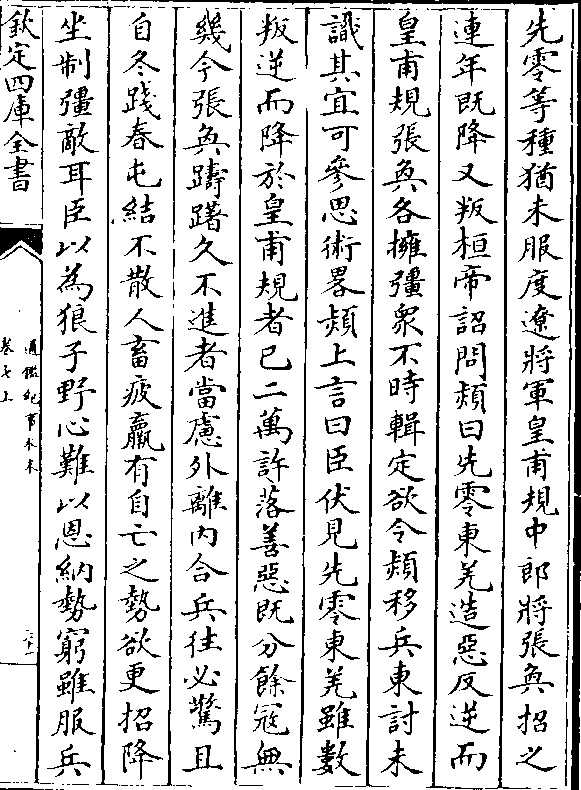 先零等種猶未服度遼將軍皇甫規中郎將張奐招之
連年既降又叛桓帝詔問熲曰先零東羌造惡反逆而
皇甫規張奐各擁彊衆不時輯定欲令熲移兵東討未
識其宜可參思術畧熲上言曰臣伏見先零東羌雖數
叛逆而降於皇甫規者已二萬許落善惡既分餘冦無
幾今張奐躊躇久不進者當慮外離内合兵往必驚且
自冬踐春屯結不散人畜疲羸有自亡之勢欲更招降
坐制彊敵耳臣以為狼子野心難以恩納勢窮雖服兵
欽定四庫全書
通鑑紀事本末
卷七上